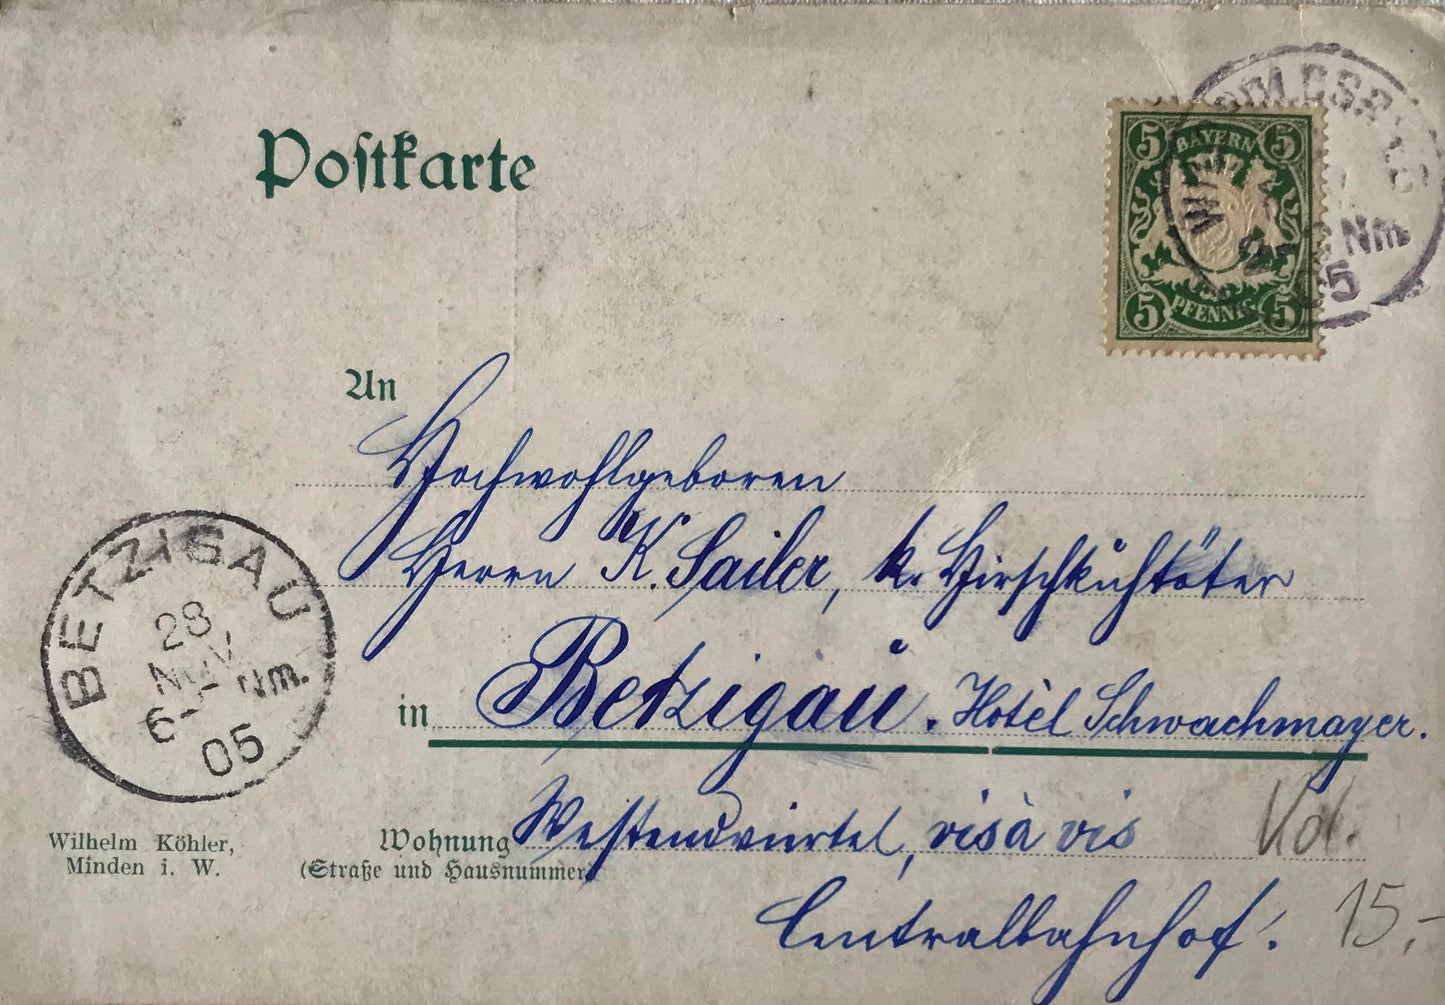 Postkarte
5 BAYERN 5
5 PFENNIG 5
Nm.
An
Hochwohlgeboren
Herrn K. Sailer, k. Hirschkühtöter
in Betzigau. Hotèl Schwachmayer.
BETZIGAU
28
NOV.
6-7 Nm.
05
Wilhelm Köhler,
Minden i. W.
Wohnung Westendviertel, vis à vis
(Straße und Hausnummer)
Centralbahnhof.
15,-